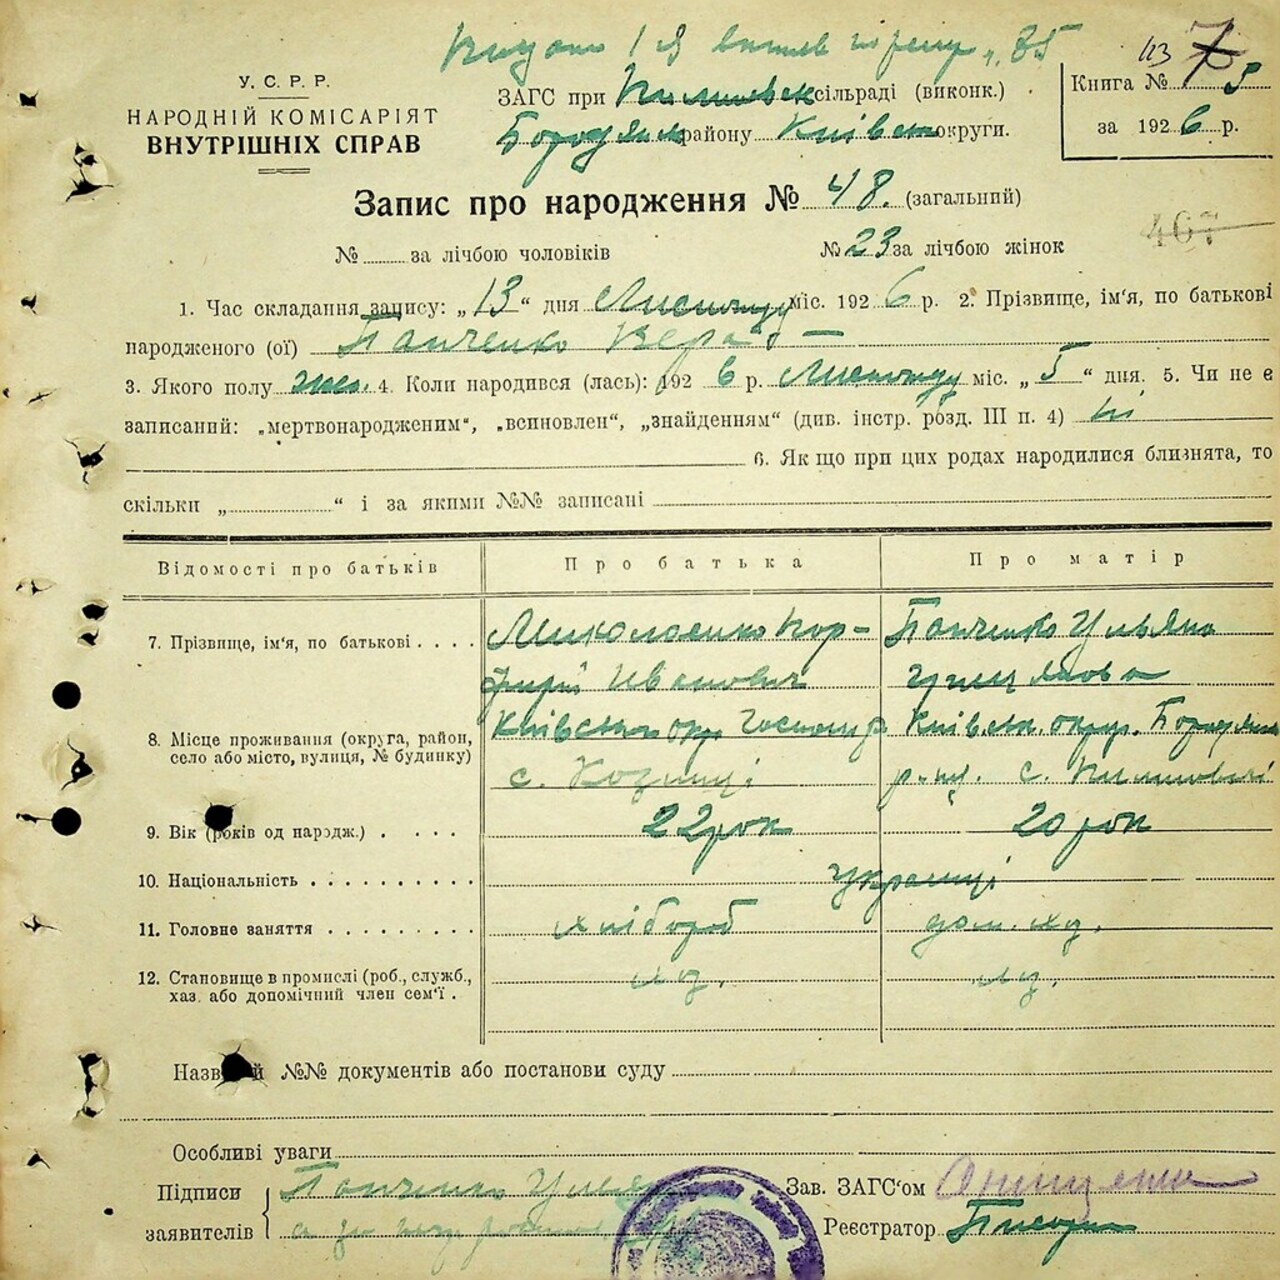 У. С. Р. Р.
НАРОДНІЙ КОМІСАРІЯТ
ВНУТРІШНІХ СПРАВ
ЗАГС при сільраді (виконк.)
Бородянск району Київськ округи.
Книга № 5
за 1926 р.
Запис про народження № 48. (загальний)
467
№ за лічбою чоловіків № 23 за лічбою жінок
1. Час складання запису: „13“ дня Листопаду міс. 1926 р. 2. Прізвище, ім'я, по батькові
народженого (ої) Панченко Вера
3. Якого полу жін. 4. Коли народився (лась): 1926 р. Листопаду міс. „5“ дня. 5. Чи не є
записаний: „мертвонародженим“, „всиновлен“, „знайденням“ (див. інстр. розд. III п. 4) ні
6. Як що при цих родах народилися близнята, то
скільки „ “ і за якими №№ записані
Відомості про батьків Про батька Про матір
7. Прізвище, ім'я, по батькові Миколаенко Пор- Панченко Ульяна
фирій Иванович
8. Місце проживання (округа, район, Київськ окр. Київськ. округ. Бородянск
село або місто, вулиця, № будинку) с. р-ну. с.
9. Вік (років од народж.) 22 рок 20 рок
10. Національність українці
11. Головне заняття хлібороб дом. хаз.
12. Становище в промислі (роб., служб.,
хаз. або допомічний член сем'ї.
Назв й №№ документів або постанови суду
Особливі уваги
Підписи Панченко
заявителів
Зав. ЗАГС'ом
Реєстратор